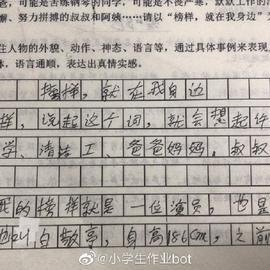 爸，可能是苦练钢琴的同学，可能是不畏严寒，默默工作的清
、努力拼搏的叔叔和阿姨……请以“榜样，就在我身边”
住人物的外貌、动作、神态、语言等，通过具体事例来表现
体，语言通顺，表达出真情实感。
榜样，就在我身边
样，说起这个词，就会想起许
学、清洁工、爸爸妈妈，叔叔
我的榜样就是一位演员，也是
他叫白敬亭，身高186cm，之前
@小学生作业bot